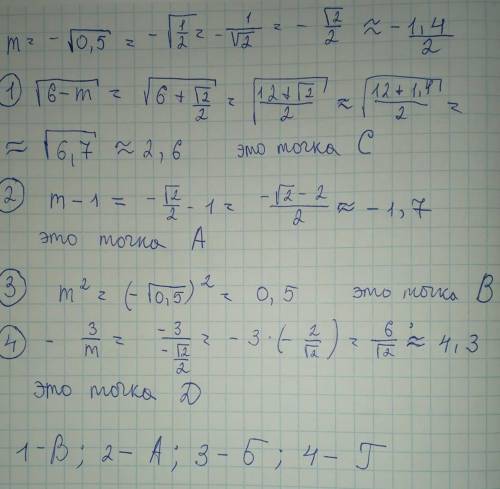 m = -√0,5 = -√(1/2) = -1/√2 = -√2/2 ≈ -1,4/2
① √(6-m) = √(6+√2/2) = √((12+√2)/2) ≈ √((12+1,4)/2) =
≈ √6,7 ≈ 2,6 это точка С
② m-1 = -√2/2 - 1 = (-√2-2)/2 ≈ -1,7
это точка А
③ m² = (-√0,5)² = 0,5 это точка В
④ -3/m = -3/(-√2/2) = -3·(-2/√2) = 6/√2 ≈ 4,3
это точка D
1-В; 2-А; 3-Б; 4-Г